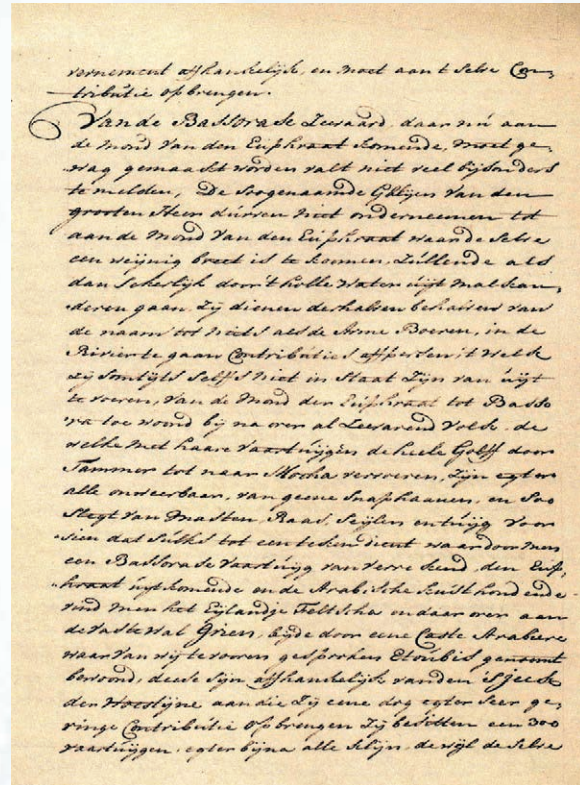 vernement affhankelijk, en moet aan 't selve Con„
tributie opbrengen.
Van de Bassorase Zeevaard, daar nú aan
de mond van den Euphraat komende, moet ge„
wag gemaakt worden valt niet veel bijsonders
te melden, De soogenaamde Galijen van den
grooten Heer dúrven niet onderneemen tot
aan de mond van den Euphraat waar de selve
een weijnig breet is te koomen, Zullende als
dan sekerlijk door 't holle water úijt malkan„
deren gaan, Zij dienen derhalven behalven van
de naam tot niets als de Arme Boeren, in de
Rivier te gaan Contributies affpersen, 't welk
zij somtijts selfs niet in staat Zijn van úijt
te voeren, van de mond der Euphraat tot Basso
ra toe woond bij na over al Zeevarend volk, de
welke met haare vaartuijgen de heele Golff door
tot naar Mocha vervoeren, Zijn egter
alle onweerbaar, van geene Snaphaanen, en soo
slegt van Masten, Raas, Seijlen en túijg voor
„sien dat súlks tot een teken dient waar door men
een Bassorase vaartuijg van verre kend, den Eup„
„hraat úijtkomende en de Arabische kust houdende
vind men het Eijlandje Feltscha en daar over aan
de vaste wal Grien, bijde door eene Caste Arabiere
waar van wij te vooren gesprooken Etoubis genaamt
bewoond, deese sijn affhankelijk van den Sjeek
der woestijne aan die Zij eene dog egter seer ge„
ringe Contributie opbrengen Zij besitten een 300
vaartuijgen, egter bijna alle klijn, dewijl de selve